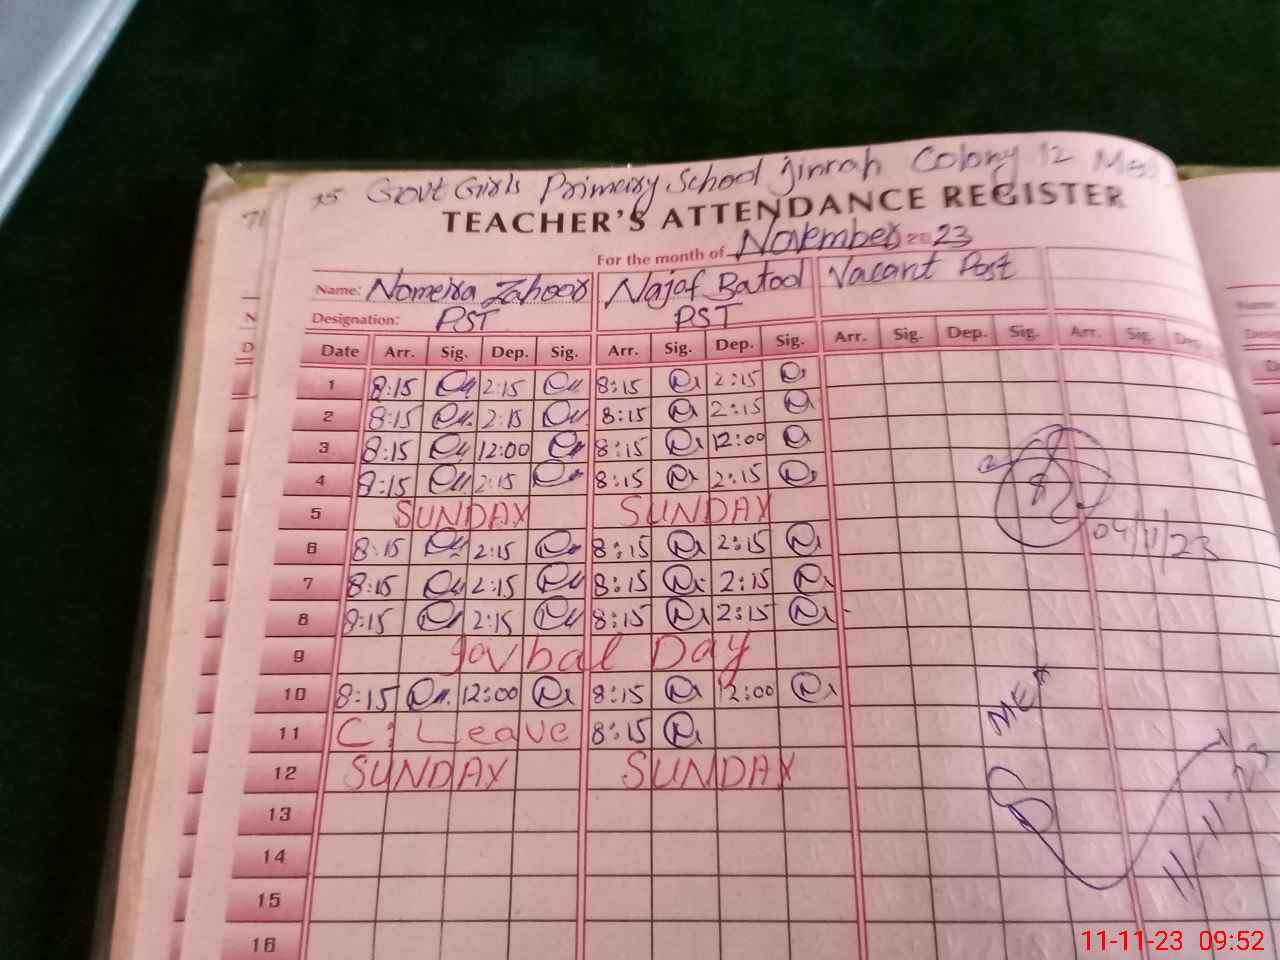 Govt Girls Primary School Jinnah Colony 12
TEACHER'S ATTENDANCE REGISTER
For the month of November 2023
Name: Nomeira Zahoor Najaf Batool Vacant Post
Designation: PST PST
Date Arr. Sig. Dep. Sig. Arr. Sig. Dep. Sig. Arr. Sig. Dep. Sig. Arr. Sig. Dep.
1 8:15 2:15 8:15 2:15
2 8:15 2:15 8:15 2:15
3 8:15 12:00 8:15 12:00
4 8:15 2:15 8:15 2:15
5 SUNDAY SUNDAY
04/11/23
6 8:15 2:15 8:15 2:15
7 8:15 2:15 8:15 2:15
8 8:15 2:15 8:15 2:15
9 Day
10 8:15 12:00 8:15 12:00
MEA
11 C: Leave 8:15
12 SUNDAY SUNDAY
13
11-11-23
14
15
16
11-11-23 09:52